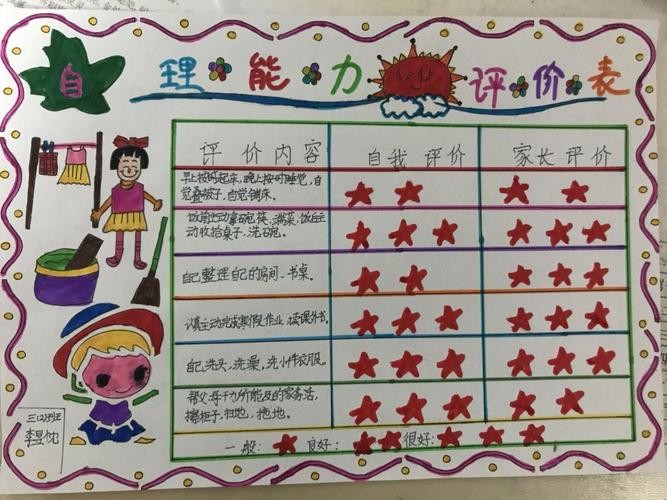 自理能力评价表
评价内容 自我评价 家长评价
早上按时起床,晚上按时睡觉,自
觉叠被子,自觉铺床。
饭前主动拿碗筷、端菜、饭后主
动收拾桌子,洗碗。
自己整理自己的房间、书桌。
认真主动完成寒假作业,读课外书。
自己洗头,洗澡,洗小件衣服。
帮父母干力所能及的家务活,
擦柜子,扫地,拖地。
一般: 良好: 很好:
三(2)班
李昱